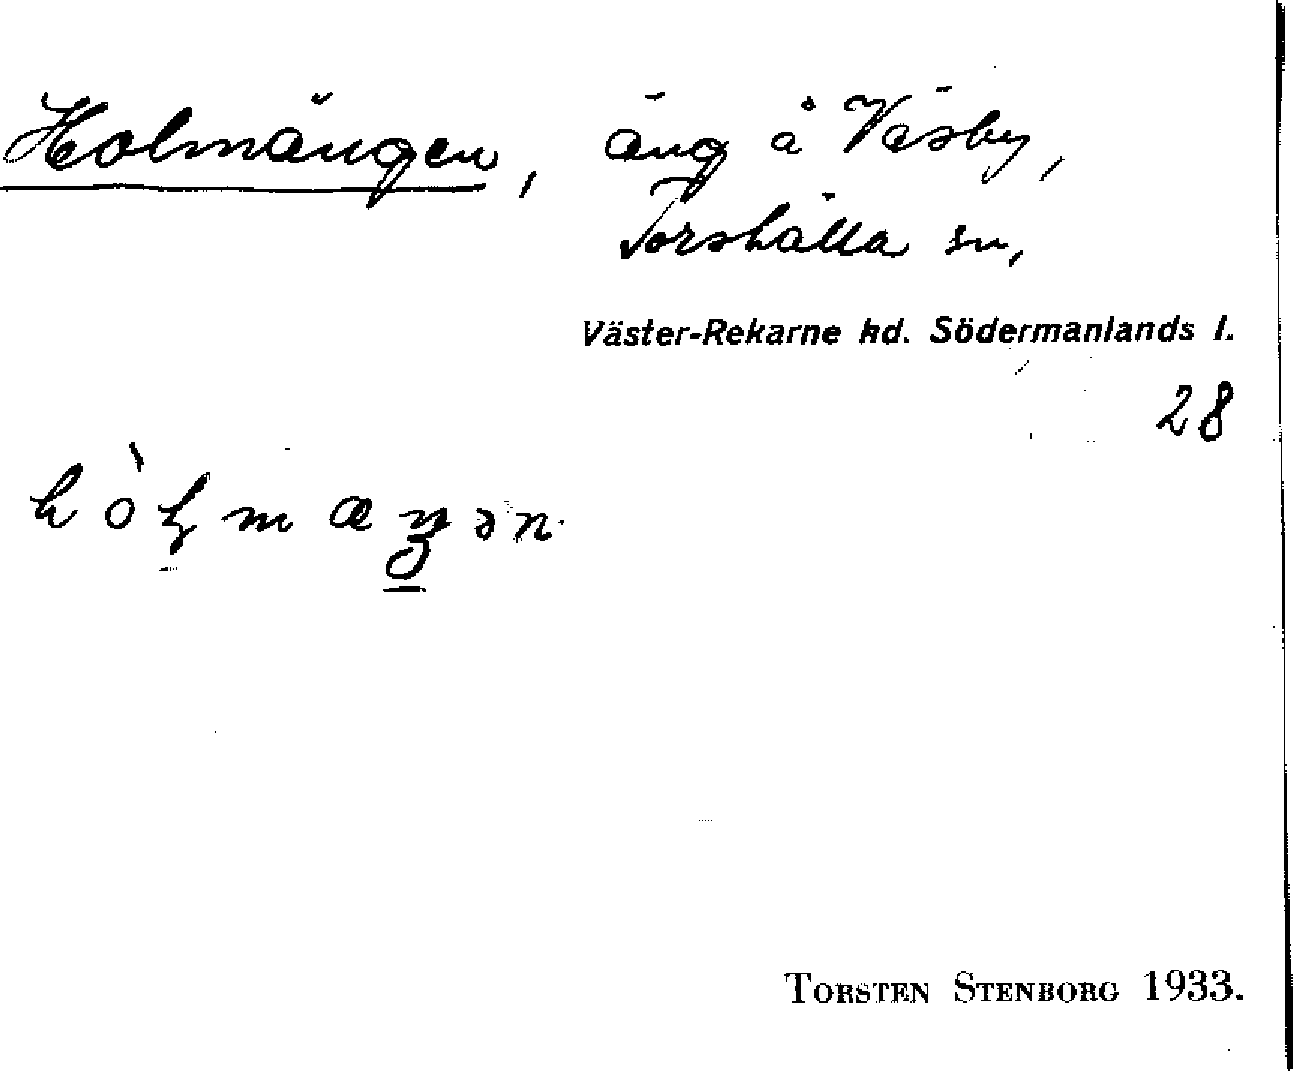 Holmängen, äng å Väsby,
Torshälla sn,
Väster-Rekarne hd. Södermanlands l.
28
TORSTEN STENBORG 1933.